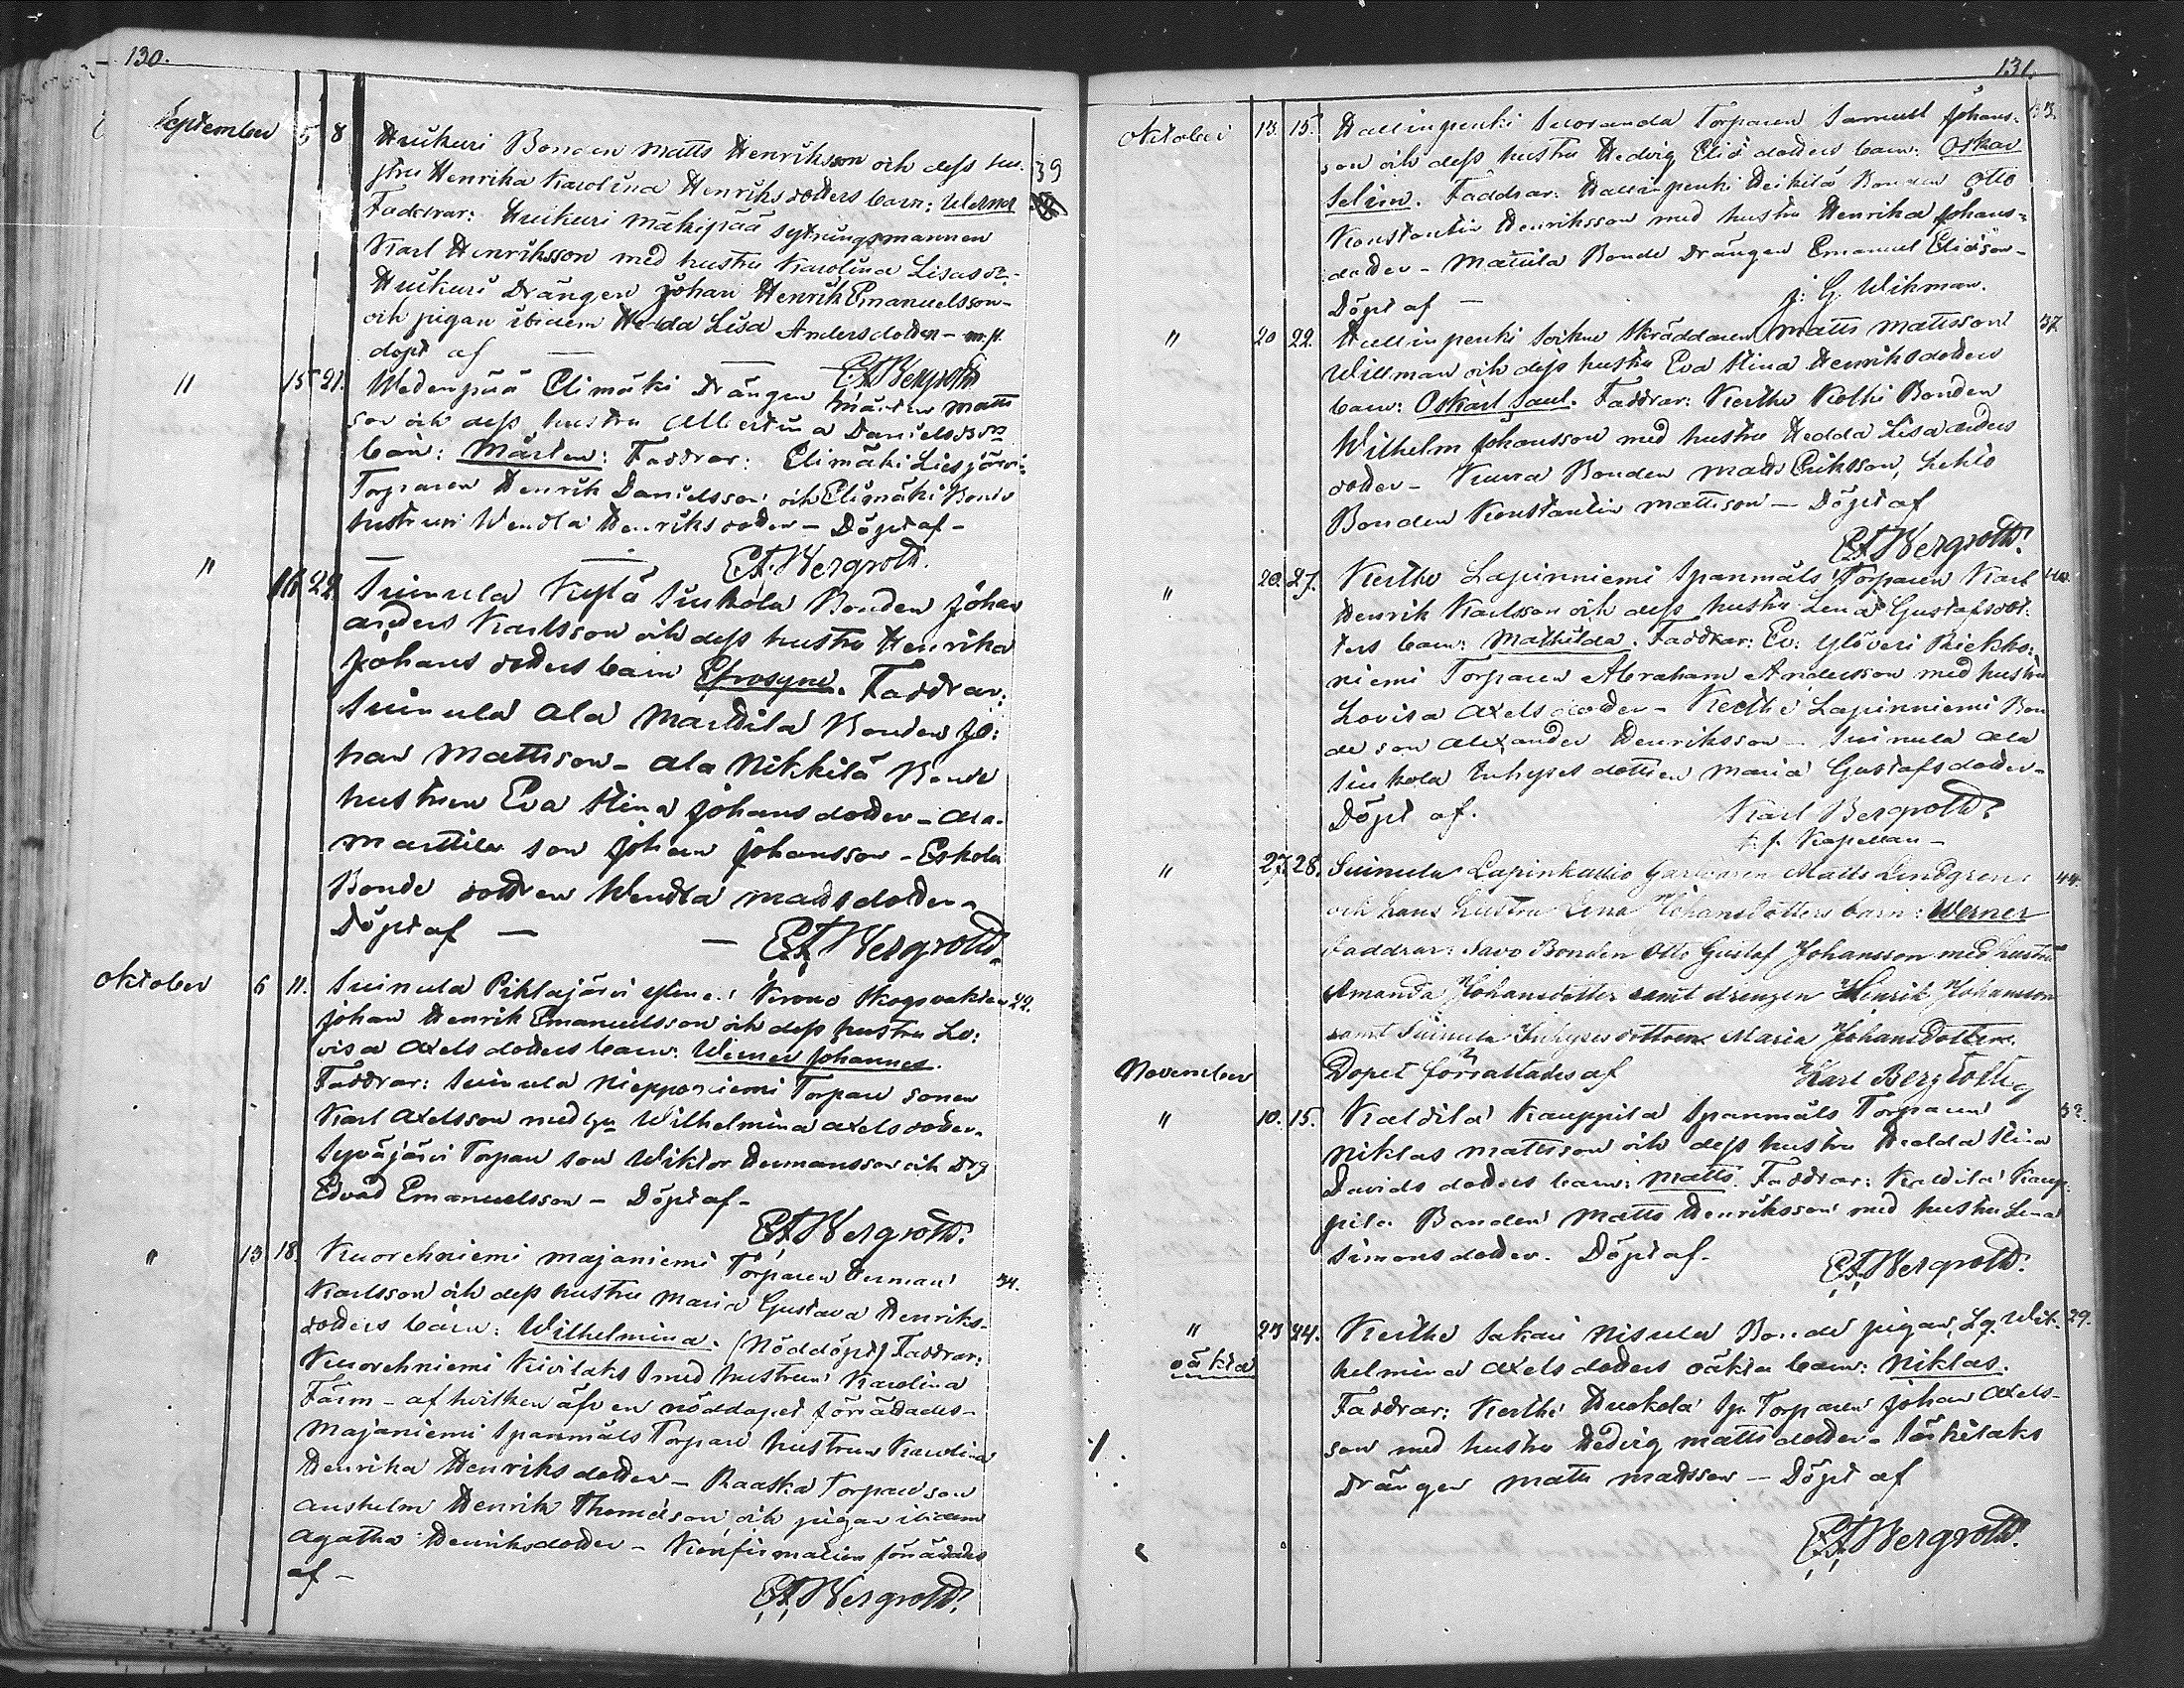 130.
September 5 8 Huikuri Bonden Matts Henriksson och dess hu- 39
stru Henrika Karolina Henriksdotters barn: Werner
Faddrar: Huikuri Mäkipää sytningsmannen
Karl Henriksson med hustru Karolina Lisasdr.-
Huikuri Drängen Johan Henrik Emanuelsson-
och pigan ibidem Hedda Lisa Andersdotter-
döpt af — —
E A Bergroth
" 15 21. Wedenpää Elimäki Drängen Mårten Matts
son och dess hustru Albertina Danielsdrs
barn: Mårten: Faddrar: Elimäki Liesjärvi-
Torparen Henrik Danielsson och Elimäki Bonde
hustrun Wendla Henriksdotter- Döpt af-
E A Bergroth.
" 16 22. Suinula Kylä Suikola Bonden Johan
Anders Karlsson och dess hustru Henrika
Johansdotters barn Efrosyne. Faddrar:
Suinula Ala Marttila Bonden Jo:
han Mattsson- Ala Nikkilä Bonde
hustrun Eva Stina Johansdotter- Ala-
Marttila son Johan Johansson- Eskola
Bonde dottren Wendla Madsdotter-
Döpt af — — E A Bergroth.
Oktober 6 11. Suinula Pihlajärvi Krono Skogsvakten 22.
Johan Henrik Emanuelsson och dess hustru Lo:
visa Axelsdotters barn: Werner Johannes.
Faddrar: Suinula Niepponiemi Torpare sonen
Karl Axelsson med Wilhelmina Axelsdotter.
Syväjärvi Torpare son Wiktor Hermansson och Drg
Edvard Emanuelsson- Döpt af-
E A Bergroth.
" 13 18. Kuorehniemi Majaniemi Torparen Herman 34.
Karlsson och dess hustru Maria Gustava Henriks-
dotters barn: Wilhelmina. (Nöddöpt) Faddrar:
Kuorehniemi Kivilaks med hustrun Karolina
Färm- af hvilken äfven nöddopet förrättades-
Majaniemi Spanmåls Torpare hustrun Karolina
Henrika Henriksdotter- Raaska Torpare son
Anshelm Henrik Thomasson och pigan ibidem
Agatha Henriksdotter- Konfirmation förrättades
af-
E A Bergroth.
131.
Oktober 13. 15. Hallinpenki Suoranda Torparen Samuel Johans- 33.
son och dess hustru Hedvig Eliædotters barn: Oskar
Selim. Faddrar: Hallinpenki Heikilä Bonden Otto
Konstantin Henriksson med hustru Henrika Johans-
dotter- Mattila Bonde Drängen Emanuel Eliæson-
Döpt af — J: G. Wikman.
" 20 22. Hallinpenki Soikun Skräddaren Matts Mattsson 37
Willman och dess hustru Eva Stina Henriksdotters
barn: Oskari Saul. Faddrar: Kerthe Kolhi Bonden
Wilhelm Johansson med hustru Hedda Lisa Anders
dotter- Kuura Bonden Mads Eriksson, Lehto
Bonden Konstantin Mattsson- Döpt af
E A Bergroth.
" 20. 27. Kerthe Lapinniemi Spanmåls Torparen Karl 40.
Henrik Karlsson och dess hustru Lena Gustafsdot-
ters barn: Mathilda. Faddrar: Ev: Ylöveri Riekko:
niemi Torparen Abraham Andersson med hustru
Lovisa Axelsdotter- Kerthe Lapinniemi Bon
de son Alexander Henriksson- Suinula Ala
Suikola Inhyses dottren Maria Gustafsdotter-
Döpt af. Karl Bergroth.
t.f. Kapellan-
" 27. 28. Suinula Lapinkallio Garfvaren Matts Lindgren 44.
och hans hustru Lena Johansdotters barn: Werner
Faddrar: Savo Bonden Otto Gustaf Johansson med hustru
Amanda Johansdotter samt drengen Henrik Johansson
samt Suinula Inhyses dottren Maria Johansdotter.
Dopet förrättades af Karl Bergroth
November
" 10. 15. Kaltila Kauppila Spanmåls Torparen
Niklas Mattsson och dess hustru Hedda Stina
Davidsdotters barn: Matts. Faddrar: Kaltila Kaup-
pila Bonden Matts Henriksson med hustru Lena
Simonsdotter. Döpt af.
E A Bergroth.
" 23 24. Kerthe Sakari Nisula Bonde pigan, Lg. Wil- 29.
oäkta helmina Axelsdotters oäkta barn: Niklas.
Faddrar: Kerthe Huskola Sp. Torparen Johan Axels-
son med hustru Hedvig Mattsdotter- Särkilaks
Drängen Matts Madsson- Döpt af
E A Bergroth.